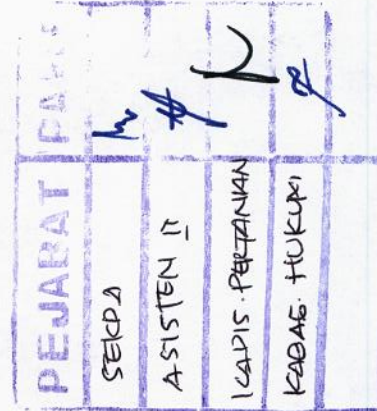 PEJABAT PARAF
SEKDA
ASISTEN II
KADIS. PERTANIAN
KABAG. HUKUM